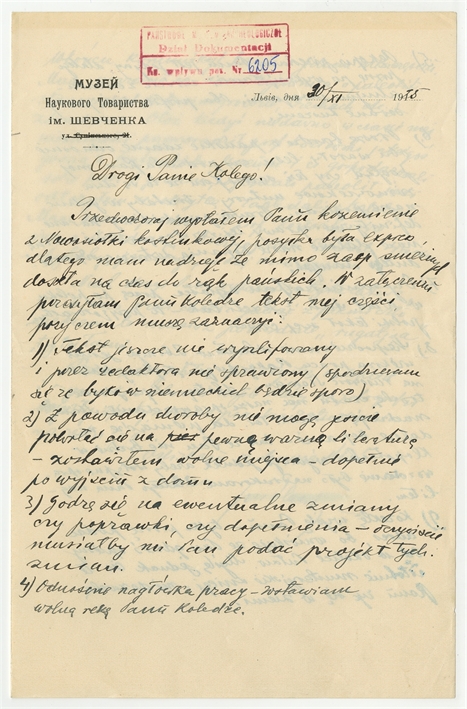 PAŃSTWOWE MUZEUM ARCHEOLOGICZNE
Dział Dokumentacji
Ks. wpływu poz. Nr. 6205
МУЗЕЙ
Наукового Товариства
ім. ШЕВЧЕНКА
Львів, дня 20/XI 1935
Drogi Panie Kolego!
Przedwczoraj wysłałem Panu krzemienie
z Nowosiółki Kostiukowej, posyłka była express,
dlatego mam nadzieję że mimo
doszła na czas do rąk pańskich. W załączeniu
przesyłam Panu Koledze tekst mej części
przyczem muszę zaznaczyć:
1) Tekst jeszcze nie wyszlifowany
i przez redaktora nie sprawiony (spodziewam
się że byków niemieckich będzie sporo)
2) Z powodu choroby nie mogę jeszcze
powołać się na pewną ważną literaturę
– zostawiłem wolne miejsca – dopełnię
po wyjściu z domu
3) Godzę się na ewentualne zmiany
czy poprawki, czy dopełnienia – oczywiście
musiałby mi Pan podać projekt tych
zmian.
4) Odnośnie nagłówka pracy – zostawiam
wolną rękę Panu Koledze.